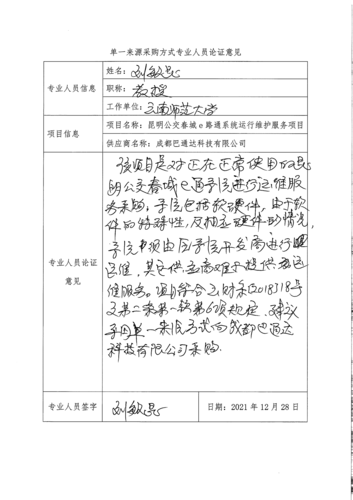 单一来源采购方式专业人员论证意见
专业人员信息
姓名：刘敏昆
职称：教授
工作单位：云南师范大学
项目信息
项目名称：昆明公交春城e路通系统运行维护服务项目
供应商名称：成都巴通达科技有限公司
专业人员论证
意见
该项目是对正在正常使用的昆
明公交春城e路通系统进行运维服
务采购。系统包括软硬件，由于软
件的特殊性，及相互硬件的情况，
系统必须由原系统开发商进行
运维，其它供应商难于提供
维服务。项目符合云财采[2018]8号
文第二条第一款第6项规定，建议
采用单一来源方式向成都巴通达
科技有限公司采购.
专业人员签字
刘敏昆
日期：2021 年 12 月 28 日